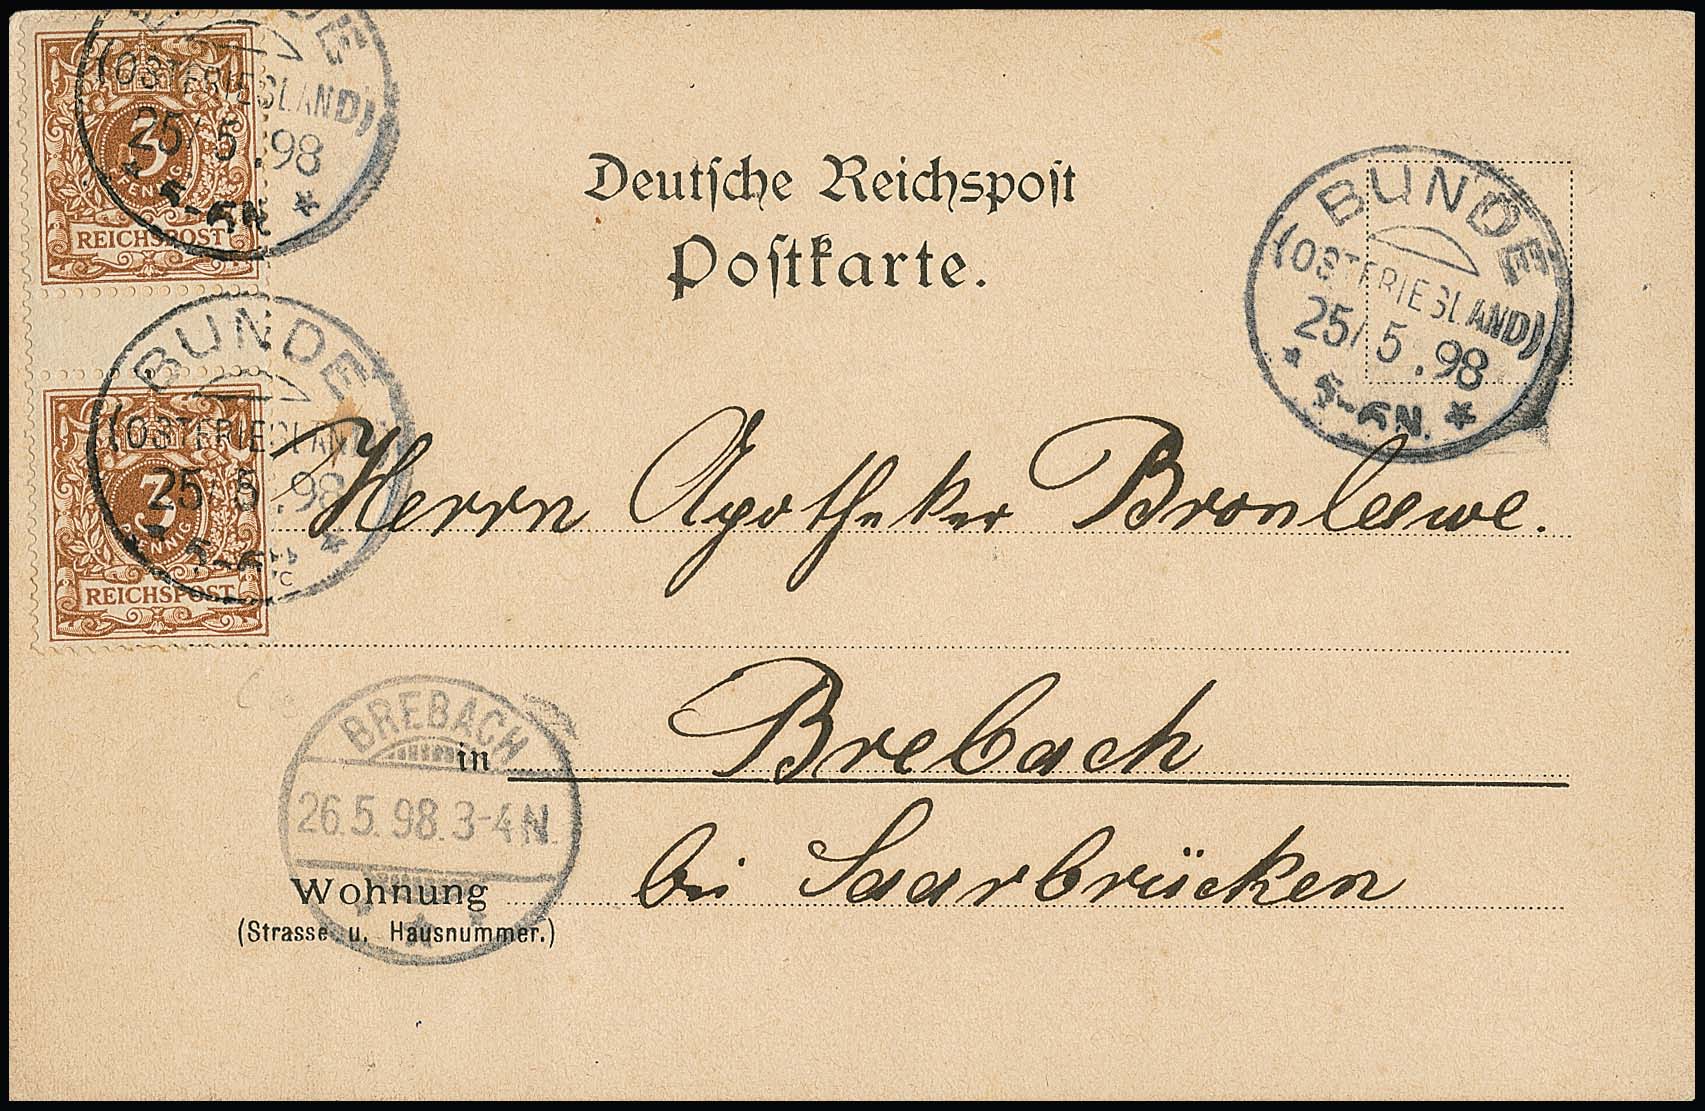 BUNDE
(OSTFRIESLAND)
25/5.98
5-6N.
3
PFENNIG
REICHSPOST
BUNDE
(OSTFRIESLAND)
25/5.98
5-6N.
3
PFENNIG
REICHSPOST
Deutsche Reichspost
Postkarte.
BUNDE
(OSTFRIESLAND)
25/5.98
5-6N.
Herrn Apotheker Bronleewe.
in Brebach
BREBACH
26.5.98.3-4N.
Wohnung bei Saarbrücken
(Strasse u. Hausnummer.)